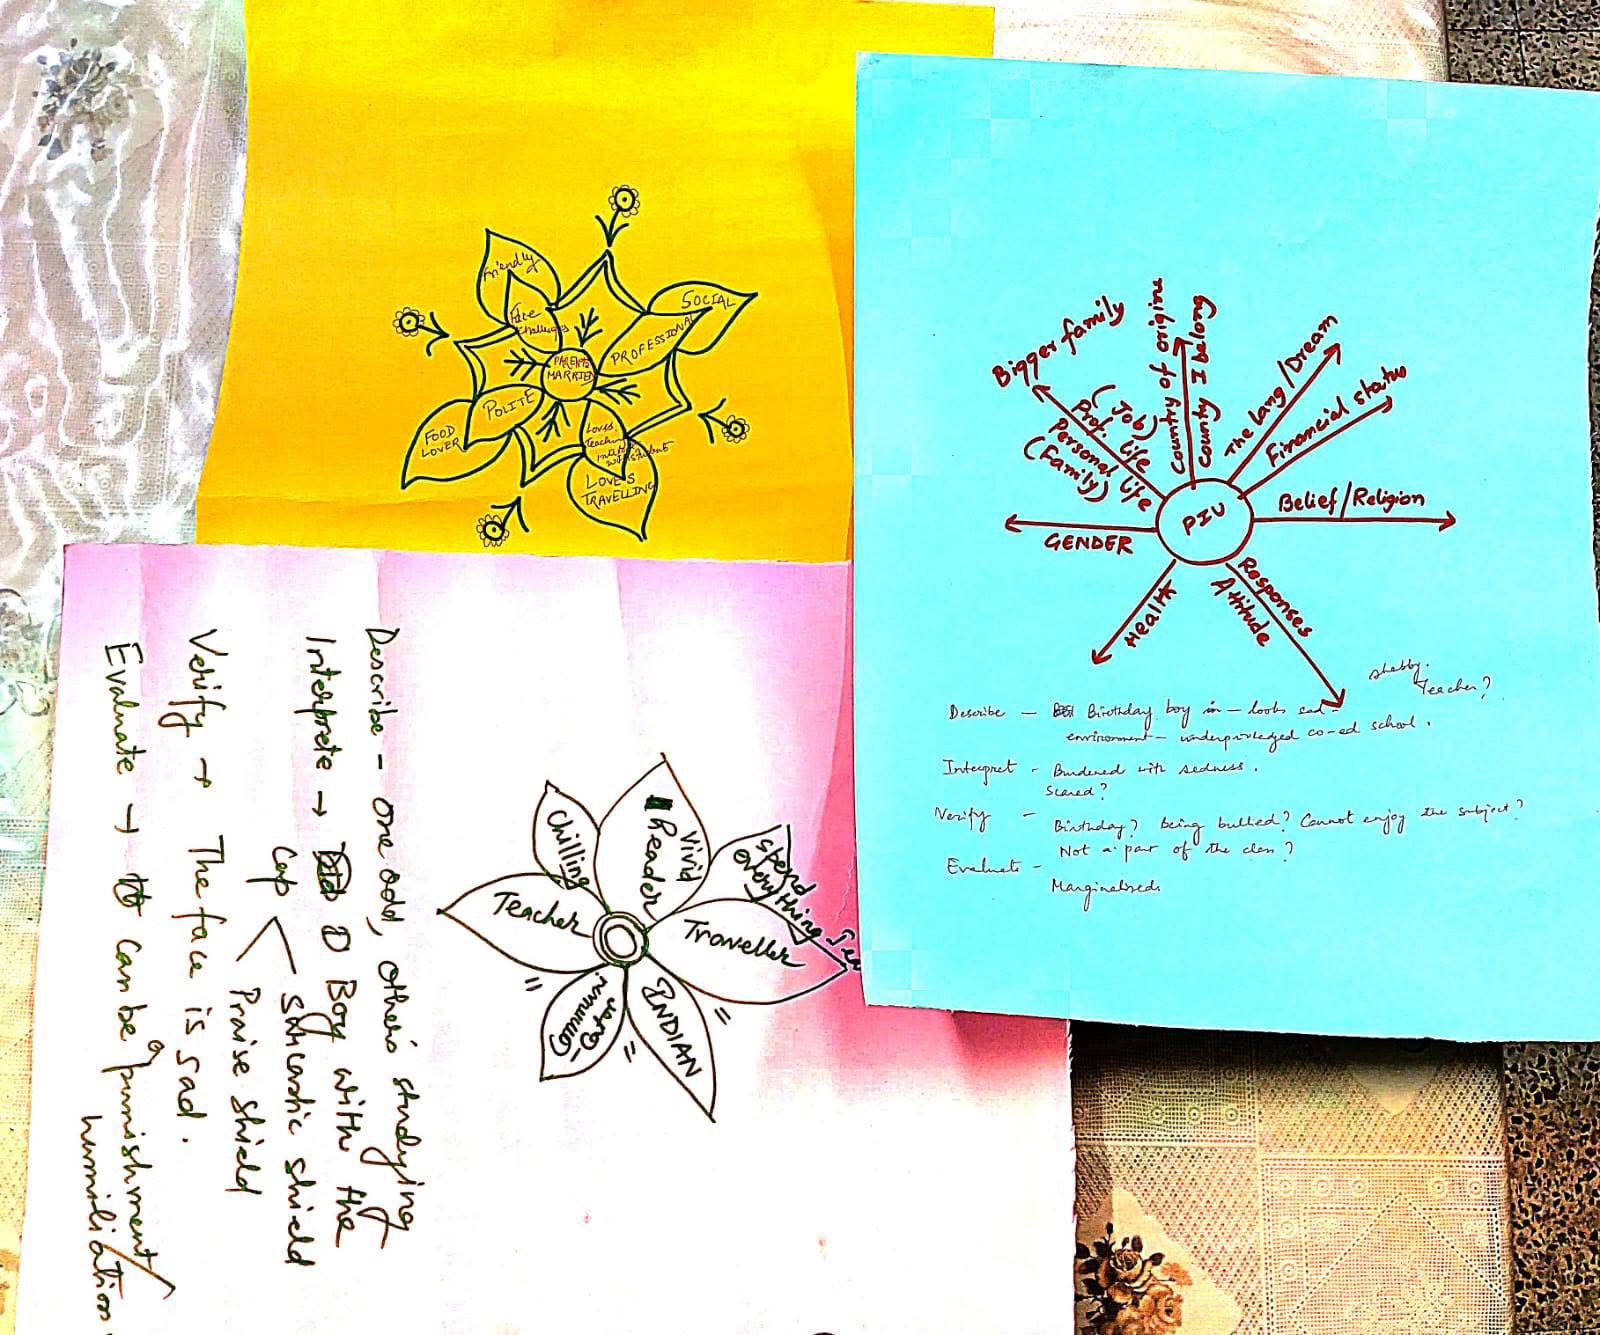 Friendly
Face
Challenges
SOCIAL
PROFESSIONAL
PARENTS
MARRIED
POLITE
FOOD
LOVER
Loves
Teaching
with student
LOVES
TRAVELLING
Bigger family
(Job)
Prof. life
Personal life
(Family)
Country of origine
County I belong
The lang/Dream
Financial status
PIU
Belief/Religion
GENDER
Health
Responses
Attitude
shabby.
Teacher?
Describe — Birthday boy in — looks sad —
environment — underpriviledged co-ed school.
Interpret - Burdened with sadness.
Scared?
Verify - Birthday? Being bullied? Cannot enjoy the subject?
Not a part of the class?
Evaluate -
Marginalised.
Describe - one odd, others studying
Interprete → Boy with the
Cap < sarcastic shield
Praise shield
Verify → The face is sad.
Evaluate → can be a punishment/
humiliation.
Chilling
Vivid
Reader
spend
everything
Teacher
Traveller
Communi
-cator
INDIAN